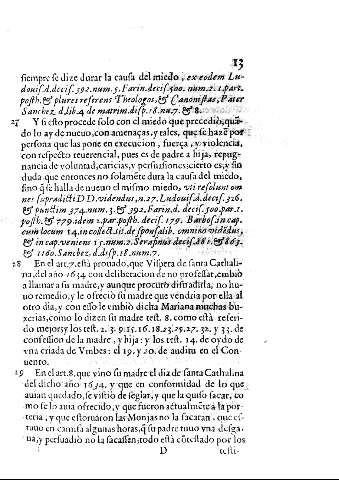 13
siempre se dize durar la causa del miedo, ex eodem Lu-
douis. d. decis. 392. num. 5. Farin. decis. 500. num. 2. 1. part.
posth. & plures referens Theologos, & Canonistas, Pater
Sanchez d. lib. 4. de matrim. disp. 18. nu. 7. & 8.
27 Y si esto procede solo con el miedo que precediò, quã-
do lo ay de nueuo, con amenaças, y tales, que se haze por
persona que las pone en execucion, fuerça, y violencia,
con respecto reuerencial, pues es de padre a hija, repug-
nancia de voluntad, caricias, y persuasiones: cierto es, y sin
duda que entonces no solamẽte dura la causa del miedo,
sino q̃ se halla de nueuo el mismo miedo, vti resoluunt om
nes supradicti DD. videndus, n. 27. Ludouis. d. decis. 326.
& punctim 374. num. 3. & 392. Farin. d. decis. 500. par. 1.
posth. & 779. idem 2. par. posth. decis. 179. Barbos. in cap.
cum locum 14. in collect. tit. de sponsalib. omnino vididus,
& in cap. veniens 15. num. 2. Serapinus decis. 881. & 863.
& 1160. Sanchez. d. disp. 18. num. 7.
28 En el art. 7. està prouado, que Vispera de santa Cathali-
na, del año 1634 con deliberacion de no professar, embiò
a llamar a su madre, y aunque procurò disuadirla, no hu-
uo remedio, y le ofreciò su madre que vendria por ella al
otro dia, y con esso le embiò dicha Mariana muchas bu-
xerias, como lo dizen su madre test. 8. como està referi-
do mejor: y los test. 2. 3. 9. 15. 16. 18. 23. 29. 27. 32. y 33. de
confession de la madre, y hija: y los test. 14. de oydo de
vna criada de Vmbes: el 19. y 20. de auditu en el Con-
uento.
29 En el art. 8. que vino su madre el dia de santa Cathalina
del dicho año 1634, y que en conformidad de lo que
auian quedado, se vistiò de seglar, y que la quiso sacar, co
mo se lo auia ofrecido, y que fueron actualmẽte a la por-
teria; y que estoruaron las Monjas no la sacaran, que es-
tuuo en camisa algunas horas, q̃ su padre tuuo vna desga-
na, y persuadiò no la sacassen; todo està cõtestado por los
D testi-